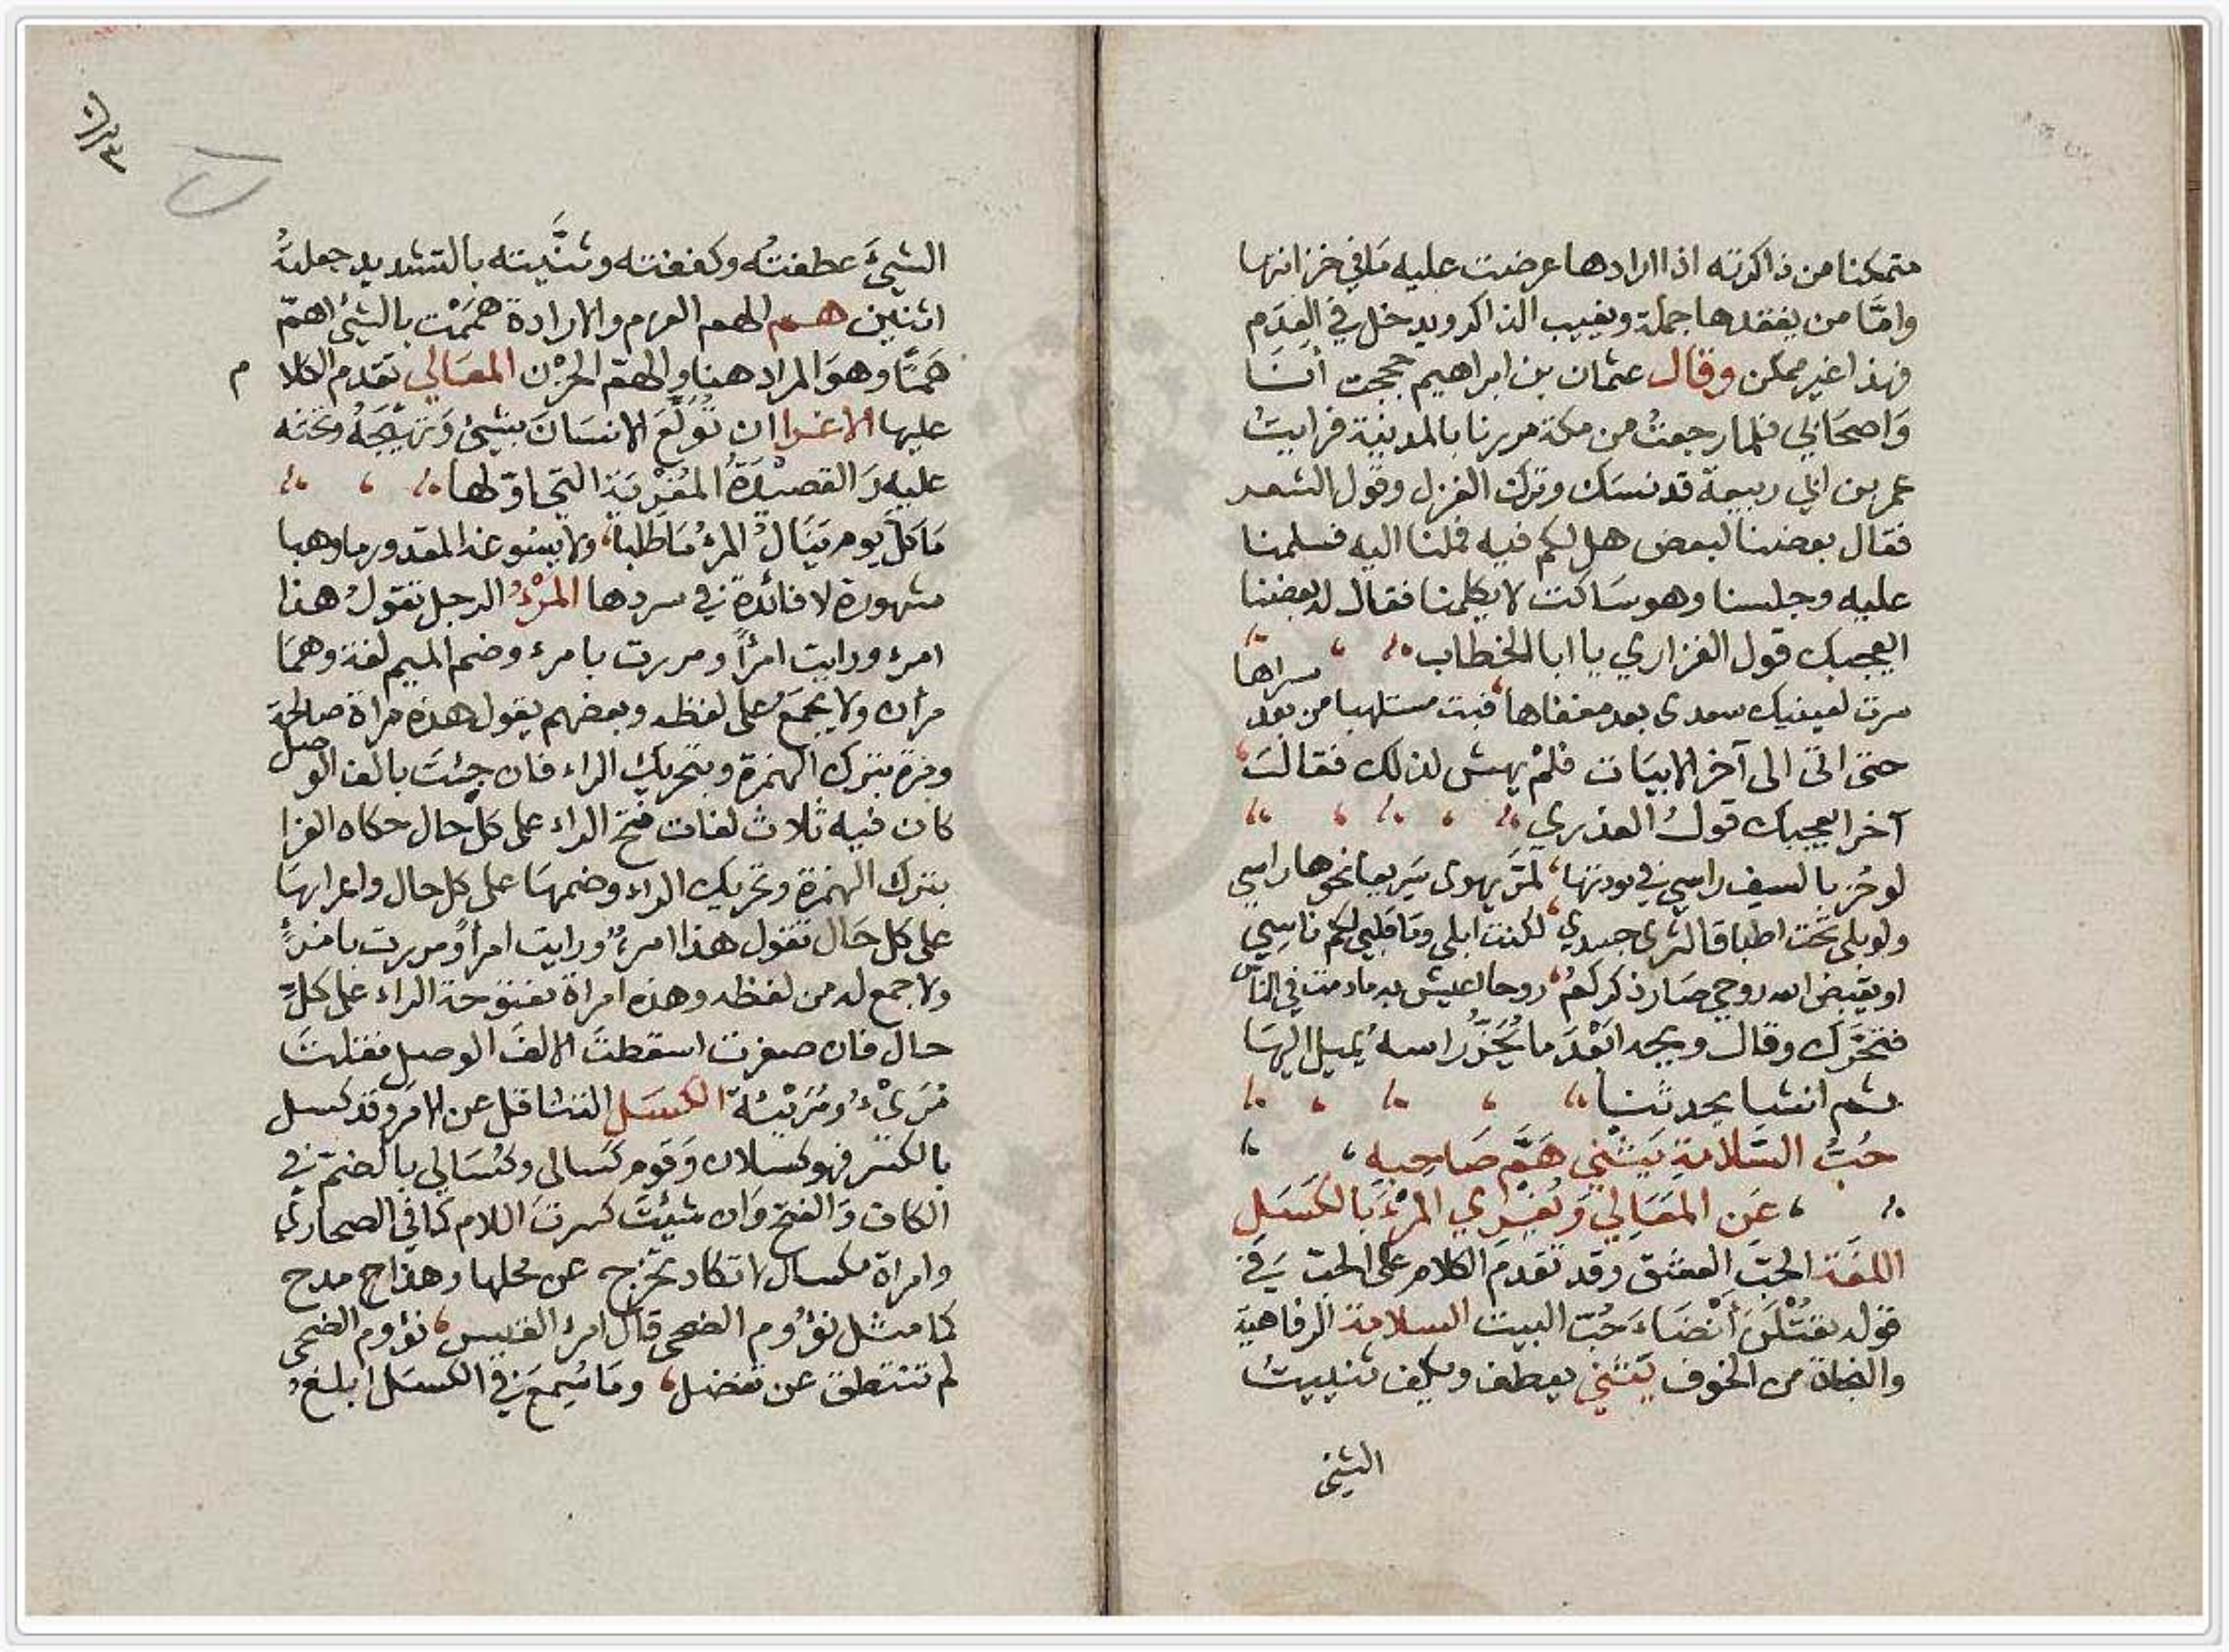 متمكنا من ذاكرته اذا ارادها عرضت عليه ما في خزانتها
وامَّا من يفقدها جملة ويغيب الذاكر ويدخل في العدَم
فهذا غير ممكن وقال عثمان بن ابراهيم حججت أنَا
وَاصحَابي فلما رجعتُ من مكة مررنا بالمدينة فرايت
عمر بن ابي ربيعة قد نسك وترك الغزل وقول الشعر
فقال بعضنا لبعض هل لكم فيه فملنا اليه فسلمنا
عليه وجلسنا وهو سَاكت لا يكلمنا فقال له بعضنا
ايعجبك قول الفزاري يا ابا الخطاب
سرت لعينيك سعدى بعد مغفاها، فبت مستلهيا من بعد مسراها
حتى اتى الى آخر الابيَات فلمْ يهش لذلك فقالَ
آخر ايعجبك قولُ العذري
لو حُز بالسيف راسي في مودتها، لمَرَّ يهوى سَريعا نحوها راسي
ولو بلى تحت اطباق الثرى جسدي، لكنت ابلى وما قلبي لكم ناسِي
او يقبض الله روحي صَار ذكركمُ، روحا اعيش به ما دمت في الناس
فتحَرَّك وقال ويحه ابَعْدَ ما يُحَزُّ راسهُ يميل اليهَا
ثم انشا يحدثنا
حُبُّ السَّلامةِ يَثْني هَمَّ صَاحِبِهِ،
، عَن المَعَالِي وَيُغْرِي المَرْءَ بِالكَسَلِ
اللغَة الحبّ العشق وقد تقدم الكلام على الحبّ في
قوله يقتُلْنَ أَنْضَاءَ حُبّ البيت السلامة الرفاهية
والنجاة من الخوف يَثني يعطف ويكف ثنيت
الشئ
الشيءَ عطفتُه وكففته وثنَّيته بالتشديد جعلتهُ
اثنين هم الهم العزم والارادة همَمْت بالشئ اهمّ
هَمًّا وهوَ المراد هنا والهمّ الحزن المعَالي تقدم الكلام
عليها الاغرا ان تُولَعَ الانسَان بشئ وَتهيّجَهُ وتحثه
عليه وَالقصيْدَةُ المُغْرِيَة التي اوّلها
مَا كلّ يوم يَنَالُ المرءُ مَا طلبا، ولا يسُوغه المقدور ما وهبا
مشهورة لا فائدة في سردها المرْءُ الرجل تقولُ هذا
امرء ورايت امرأً ومررت بامرء وضم الميم لغة وهمَا
مرأن ولا يجمَعُ على لفظه وبعضهم يقول هذه مراة صالحة
ومرة بترك الهمزة وبتحريك الراء فان جئتَ بالف الوصل
كان فيه ثلاث لغات فتح الراء على كل حال حكاه الفرا
بترك الهمزة وتحريك الراء وضمهَا على كل حال واعرابهَا
على كل حَال تقول هذا امرءٌ ورايت امرأً ومررت بامرءٍ
ولا جمع له من لفظه وهذه امراة مفتوحة الراء على كلّ
حال فان صغرت اسقطتَ الالفَ الوصل فقلتَ
مُرَىْءٌ ومُرَيْئة الكسَل التثاقل عن الامر وقد كسل
بالكسْر فهو كسلان وَقوم كسَالى وكُسَالى بالضمّ في
الكاف وَالفتح وَان شئتَ كسرتَ اللام كما في الصحاري
وامراة مكسال لا تكاد تخرج عن محلها وهذا ج مدح
كما مثل نؤوم الضحى قال امرء القيس، نؤوم الضحى
لم تنتطق عن تفضل، ومَا سُمعَ في الكسَل ابلغ